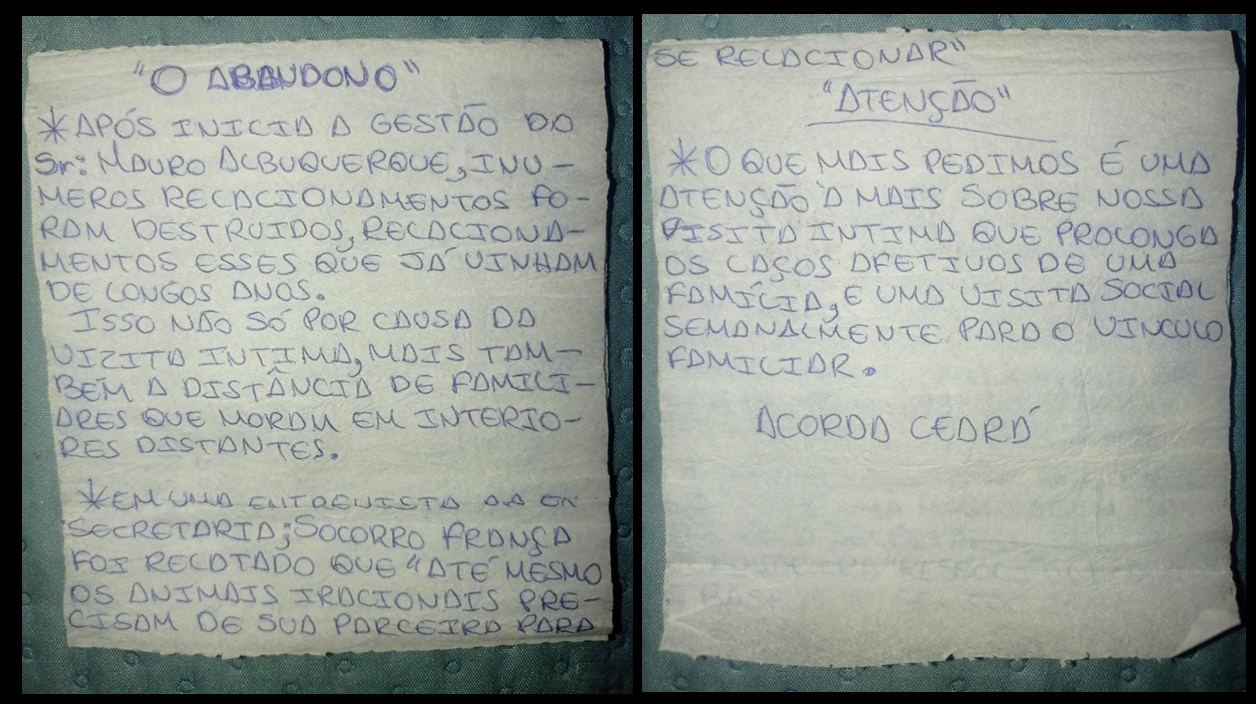 "O ABANDONO"
*APÓS INICIA A GESTÃO DO
Sr: MAURO ALBUQUERQUE, INU-
MEROS RELACIONAMENTOS FO-
RAM DESTRUIDOS, RELACIONA-
MENTOS ESSES QUE JÁ VINHAM
DE LONGOS ANOS.
ISSO NÃO SÓ POR CAUSA DA
VIZITA INTIMA, MAIS TAM-
BÉM A DISTÂNCIA DE FAMILI-
ARES QUE MORAM EM INTERIO-
RES DISTANTES.
*EM UMA ENTREVISTA DA EX
SECRETARIA; SOCORRO FRANÇA
FOI RELATADO QUE "ATÉ MESMO
OS ANIMAIS IRACIONAIS PRE-
CISAM DE SUA PARCEIRA PARA
SE RELACIONAR"
"ATENÇÃO"
*O QUE MAIS PEDIMOS É UMA
ATENÇÃO A MAIS SOBRE NOSSA
VISITA INTIMA QUE PROLONGA
OS LAÇOS AFETIVOS DE UMA
FAMÍLIA, E UMA VISITA SOCIAL
SEMANALMENTE PARA O VINCULO
FAMILIAR.
ACORDA CEARÁ